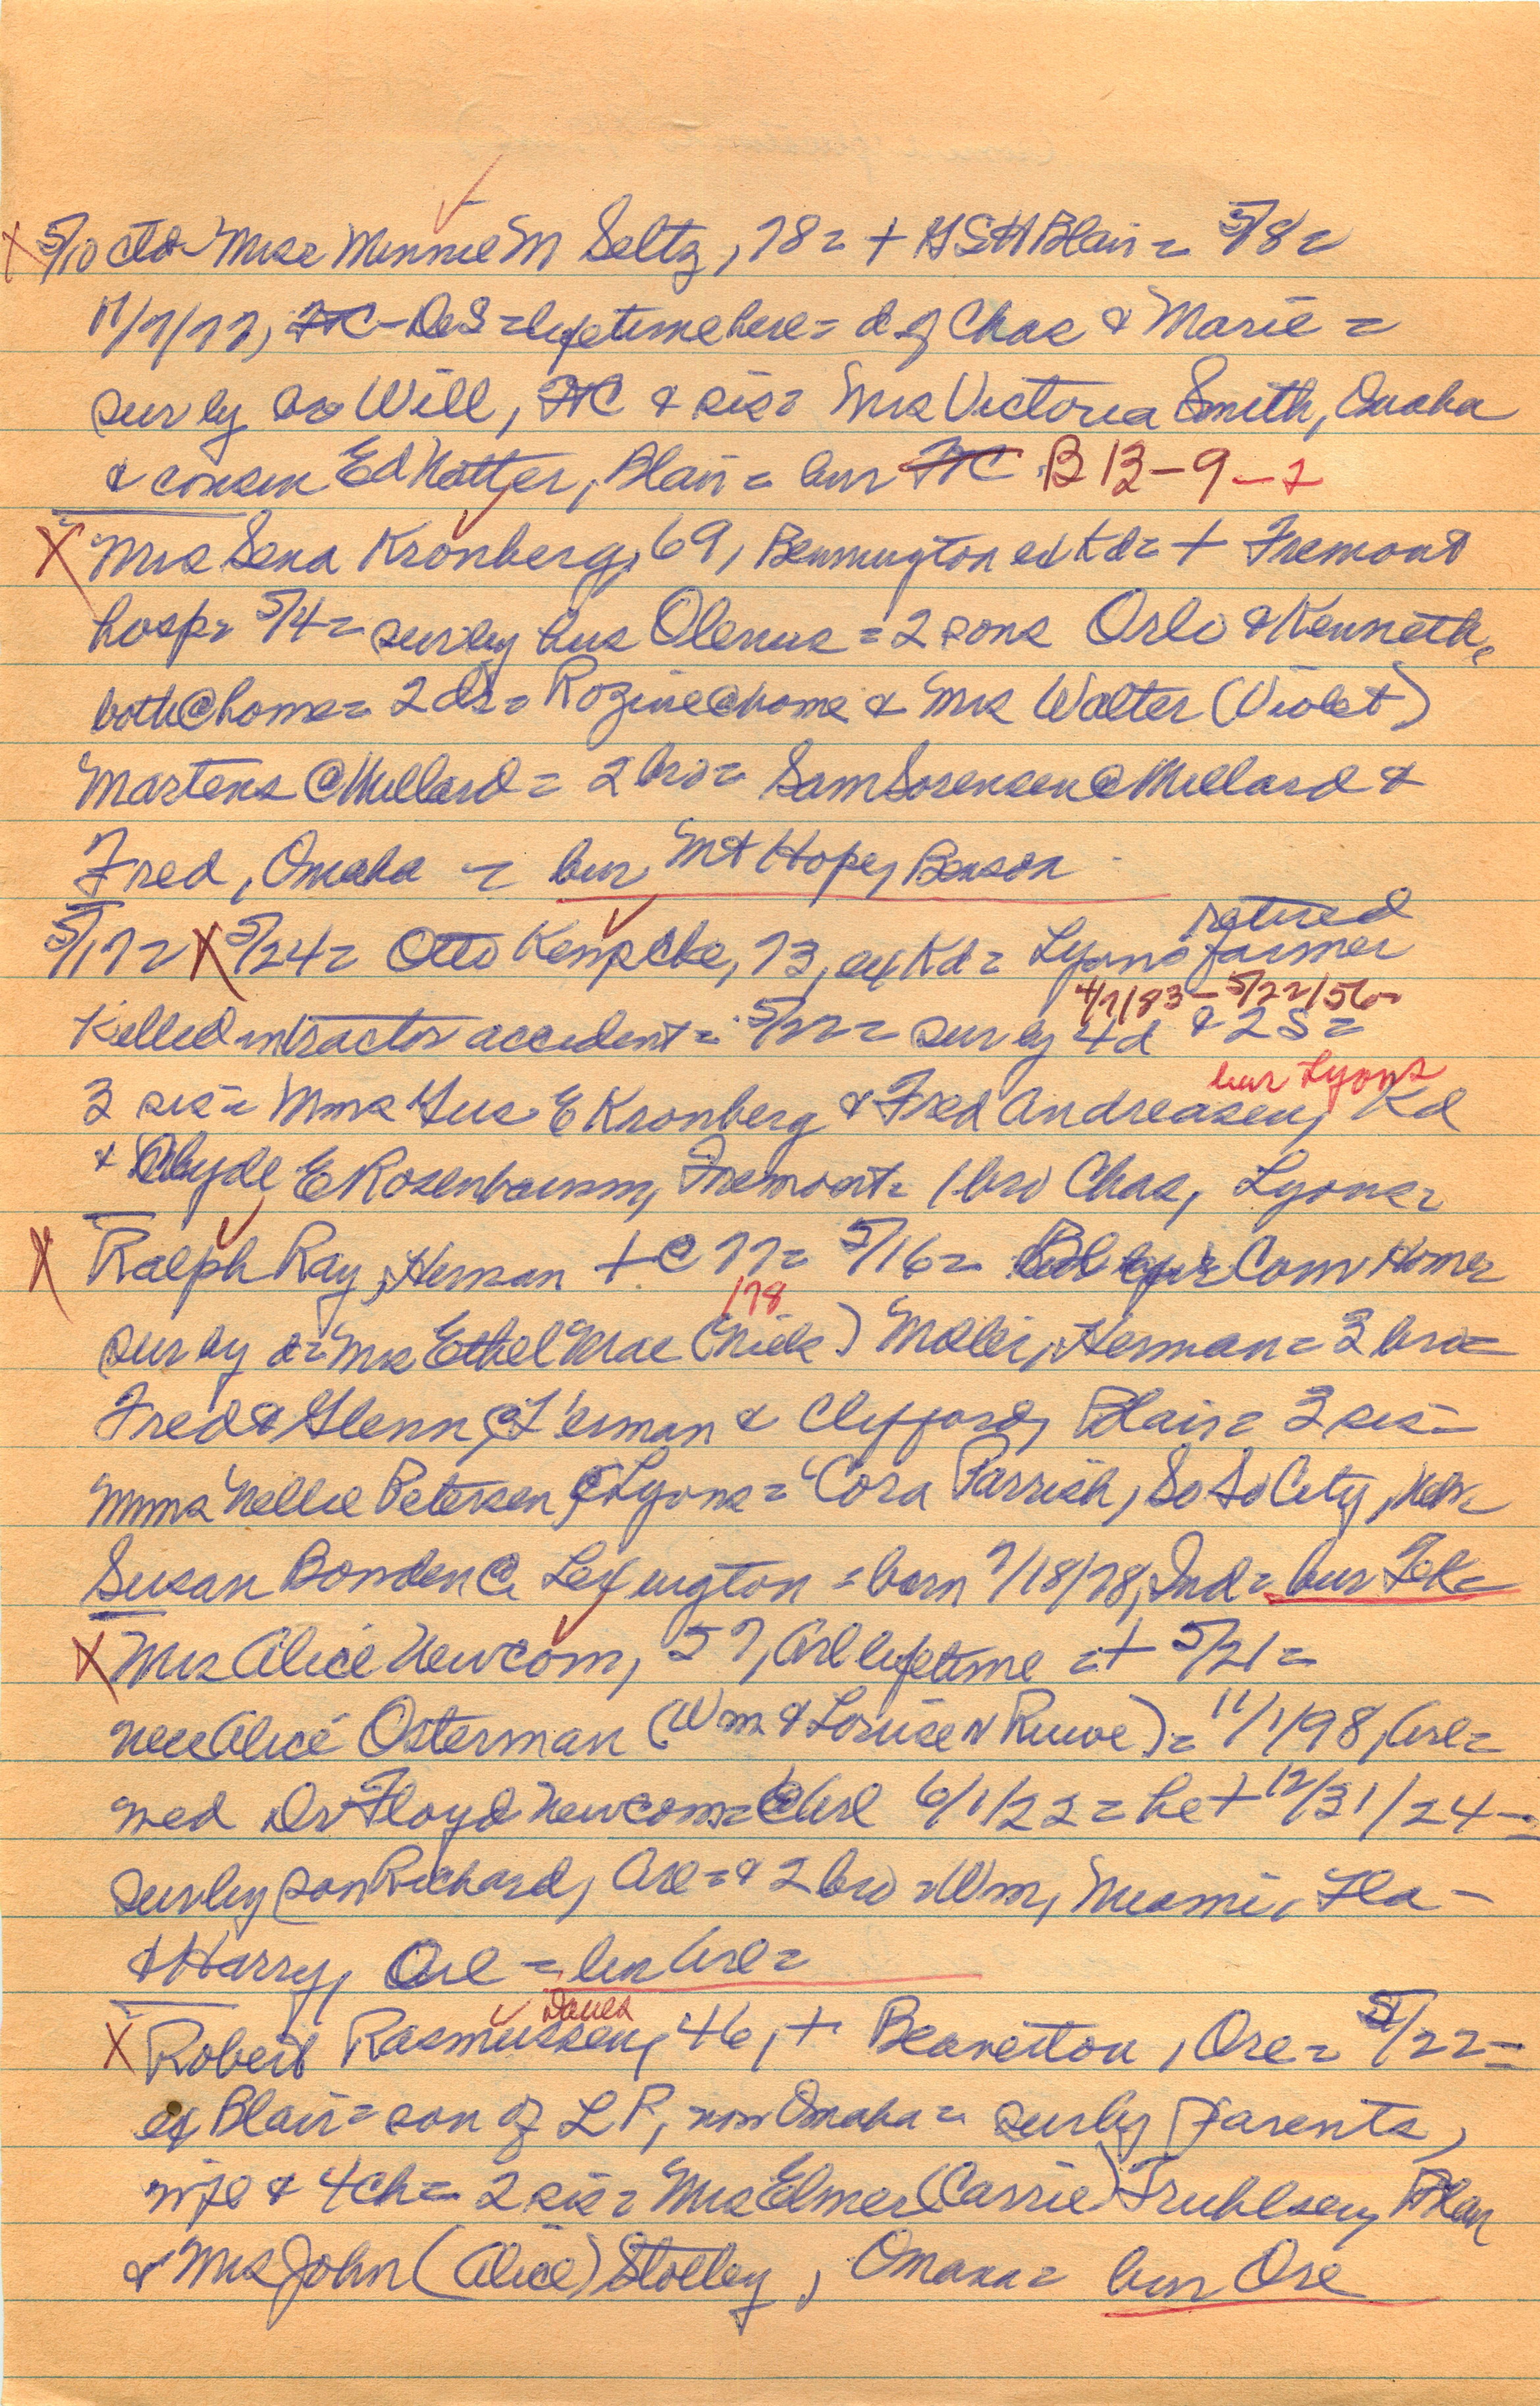 X 5/10 ctd- Miss Minnie M Seltz, 78 = + GSH Blair = 5/8 =
11/7/77, FTC - DeS = lifetime here = d of Chas & Marie =
sur by bro Will, FTC & sis = Mrs Victoria Smith, Omaha
& cousin Ed Natter, Blair = bur FTC B 13 - 9 - 2
X Mrs Sena Kronberg, 69, Bennington ex Kd = + Fremont
hosp = 5/4 = sur by hus Olenus = 2 sons Orlo & Kenneth,
both @ home = 2 ds = Rozine @ home & Mrs Walter (Violet)
Martens @ Millard = 2 bro = Sam Sorensen @ Millard &
Fred, Omaha = bur Mt Hope, Benson
retired
5/17 = X 5/24 = Otto Kempcke, 73, ex Kd = Lyons farmer
4/7/83 - 5/22/56 -
Killed in tractor accident = 5/22 = sur by 4 d & 2 S =
bur Lyons
3 sis = Mms Gus E Kronberg & Fred Andreasen, Kd
& Clyde E Rosenbaum, Fremont = 1 bro Chas, Lyons =
X Ralph Ray, Herman + @ 77 = 5/16 = Conv Home =
178
sur by d = Mrs Ethel Mae (Nick) Moller, Herman = 3 bro =
Fred & Glenn @ Herman & Clifford, Blair = 3 sis =
Mmms Nellie Petersen @ Lyons = Cora Parrish, So So City, Neb =
Susan Bonden @ Lexington = born 7/18/78, Ind = bur Tek =
X Mrs Alice Newcom, 57, Arl lifetime = + 5/21 =
nee Alice Osterman (Wm & Louise N Ruwe) = 11/1/98, Arl =
med Dr Floyd Newcom = @ Arl 6/1/22 = he + 12/31/24 - =
sur by son Richard, Arl = & 2 bro = Wm, Miami, Fla -
& Harry, Arl = bur Arl =
Danes
X Robert Rasmussen, 46, + Beaverton, Ore = 5/22 =
ex Blair = son of L P, now Omaha = sur by parents,
wife & 4 ch = 2 sis = Mrs Elmer (Carrie) Fruhlsen, Blair
& Mrs John (Alice) Stolley, Omaha = bur Ore